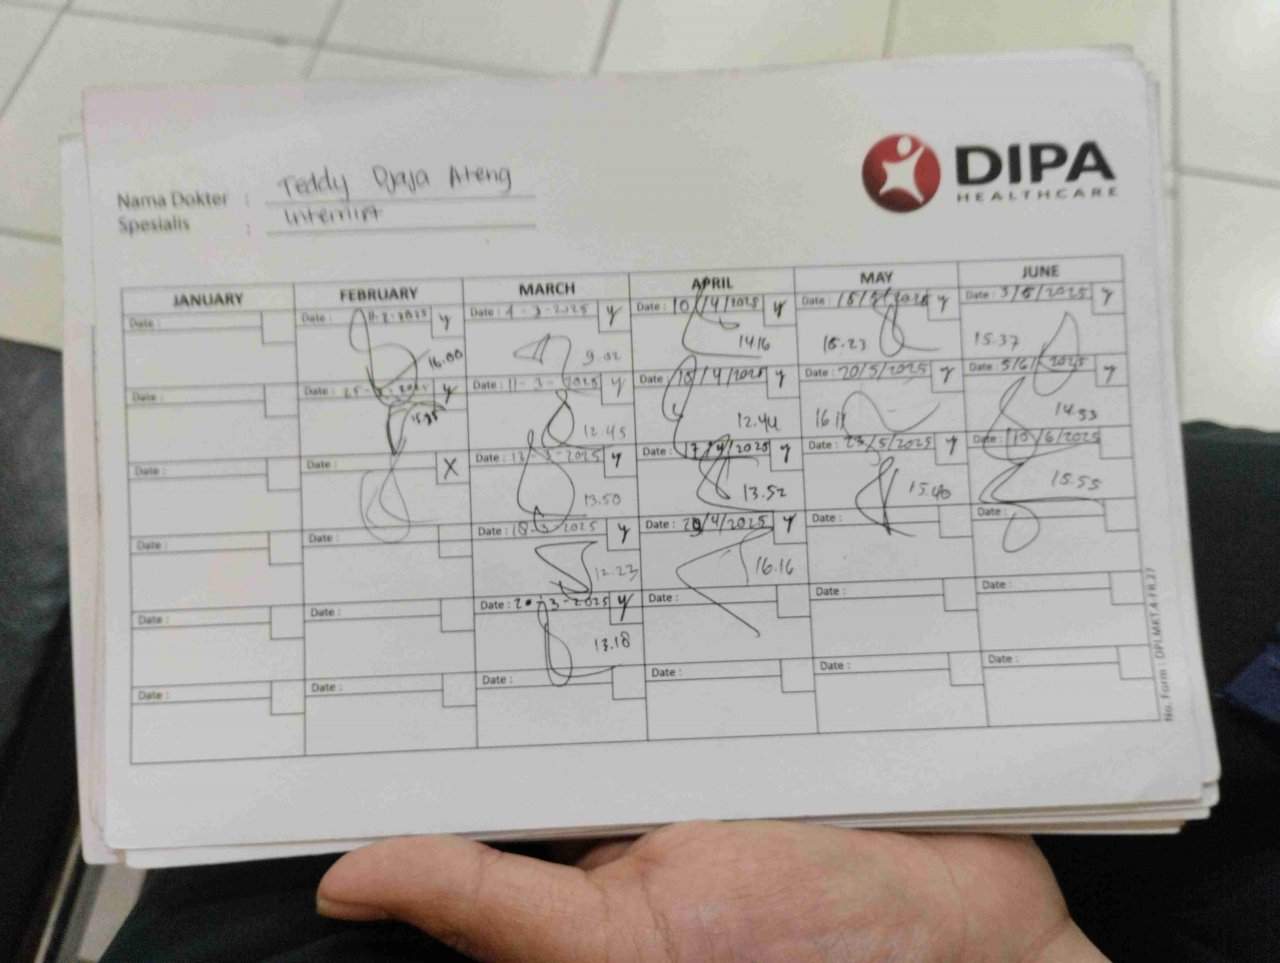 DIPA
HEALTHCARE
Nama Dokter : Teddy Djaja Ateng
Spesialis : Internist
JANUARY FEBRUARY MARCH APRIL MAY JUNE
Date : Date : 11-2-2025 y Date : 4-3-2025 y Date : 10/4/2025 y Date : 15/5/2025 y Date : 3/6/2025 y
16.00 9.02 1416 15.23 15.37
Date : Date : 25- y Date : 11-3-2025 y Date : /4/2025 y Date : 20/5/2025 y Date : 5/6/2025 y
15.35 12.45 12.44 16 11 14.33
Date : Date : X Date : 13-3-2025 y Date : 17/4/2025 y Date : 23/5/2025 y Date : 10/6/2025
13.50 13.52 15.40 15.55
Date : Date : Date : 18-3-2025 y Date : 29/4/2025 y Date : Date :
12.23 16.16
Date : Date : Date : 20-3-2025 y Date : Date : Date :
13.18
Date : Date : Date : Date : Date : Date :
No. Form : DPLMKT.4-FR.27